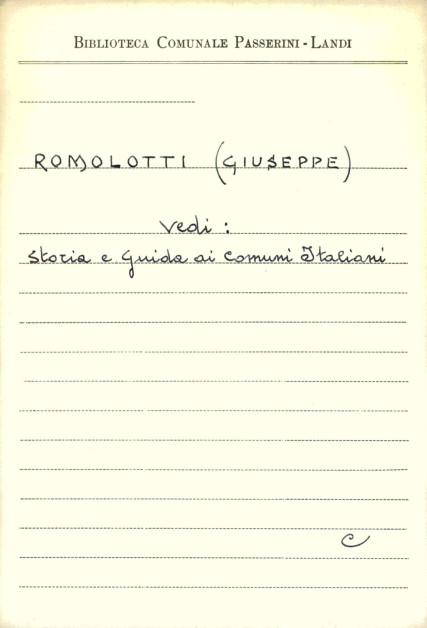 BIBLIOTECA COMUNALE PASSERINI - LANDI
ROMOLOTTI (GIUSEPPE)
Vedi :
Storia e Guida ai Comuni Italiani
C